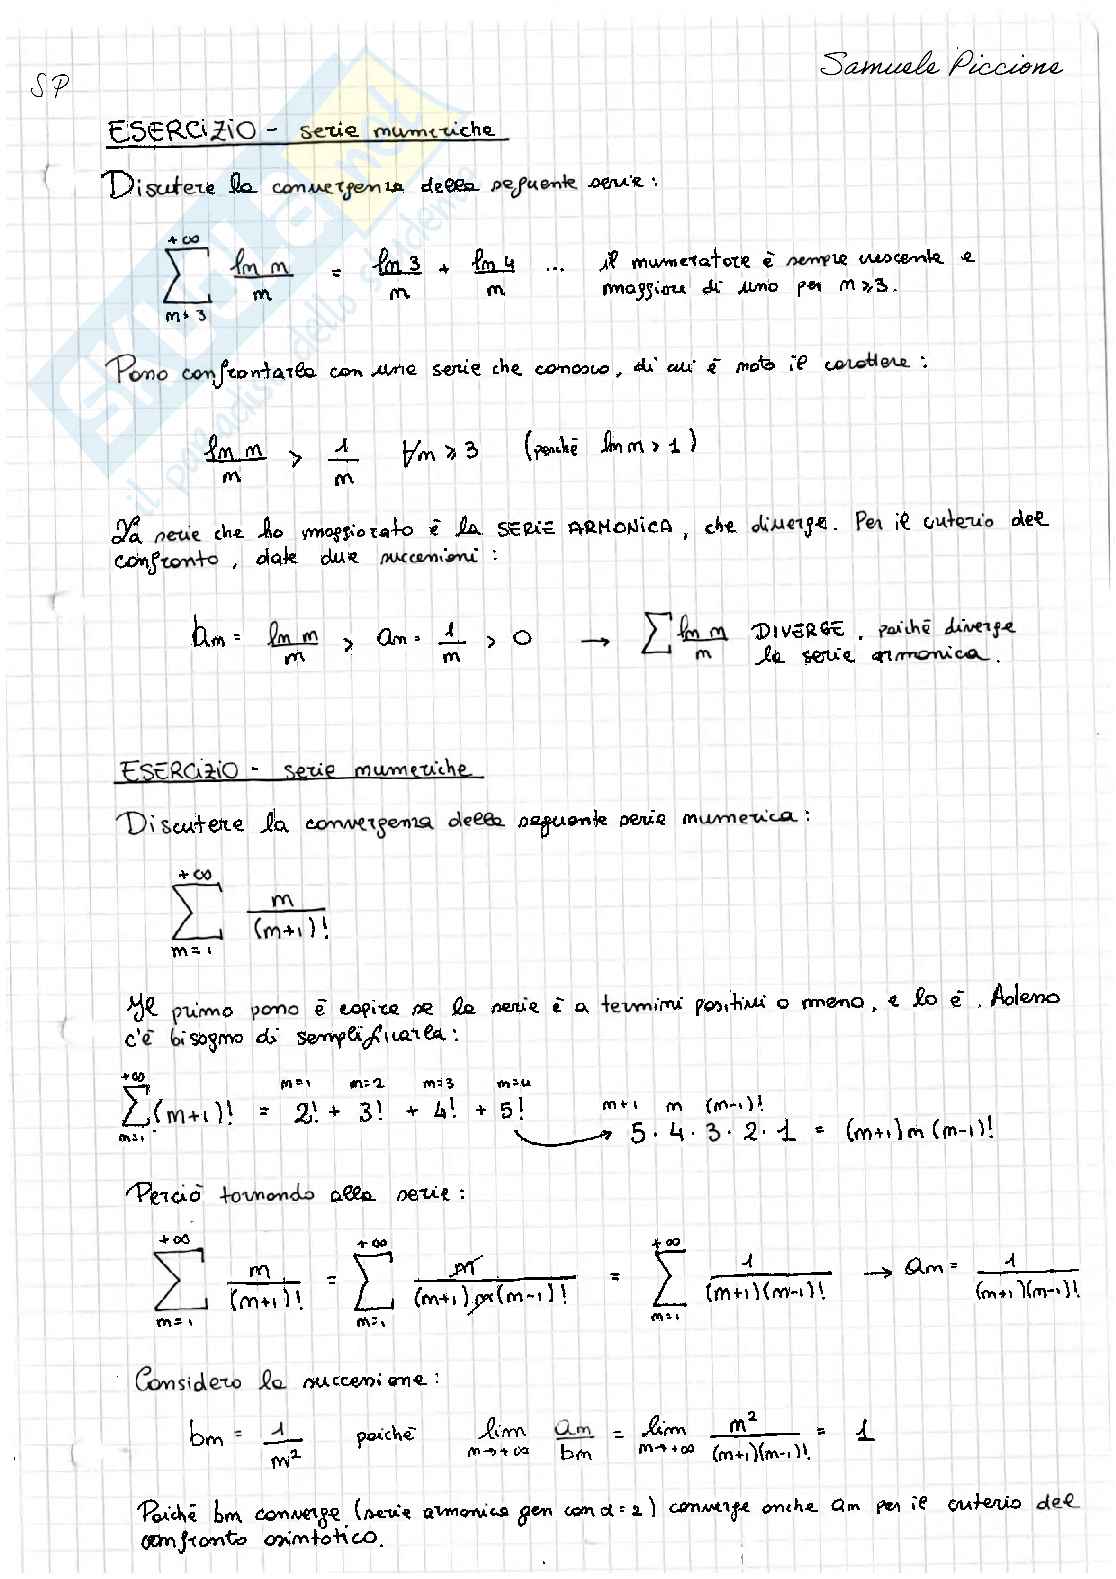 Samuele Piccione
SP
ESERCIZIO - serie numeriche
Discutere la convergenza della seguente serie:
+∞ ∑ n=3 ln n / n = ln 3 / n + ln 4 / n ... il numeratore è sempre crescente e
maggiore di uno per n ≥ 3.
Posso confrontarla con una serie che conosco, di cui è noto il carattere:
ln n / n > 1 / n ∀n ≥ 3 (perché ln n > 1)
La serie che ho maggiorato è la SERIE ARMONICA, che diverge. Per il criterio del
confronto, date due successioni:
bn = ln n / n > an = 1 / n > 0 → ∑ ln n / n DIVERGE, poiché diverge
la serie armonica.
ESERCIZIO - serie numeriche
Discutere la convergenza della seguente serie numerica:
+∞ ∑ n=1 n / (n+1)!
Il primo passo è capire se la serie è a termini positivi o meno, e lo è. Adesso
c'è bisogno di semplificarla:
n=1 n=2 n=3 n=4
+∞ ∑ n=1 (n+1)! = 2! + 3! + 4! + 5!
n+1 n (n-1)!
5 · 4 · 3 · 2 · 1 = (n+1) n (n-1)!
Perciò tornando alla serie:
+∞ ∑ n=1 n / (n+1)! = +∞ ∑ n=1 n / (n+1) n (n-1)! = +∞ ∑ n=1 1 / (n+1)(n-1)! → an = 1 / (n+1)(n-1)!
Considero la successione:
bn = 1 / n² poiché lim n→+∞ an / bn = lim n→+∞ n² / (n+1)(n-1)! = 1
Poiché bn converge (serie armonica gen con α = 2) converge anche an per il criterio del
confronto asintotico.
SKUOLA.net
il paradiso dello studente